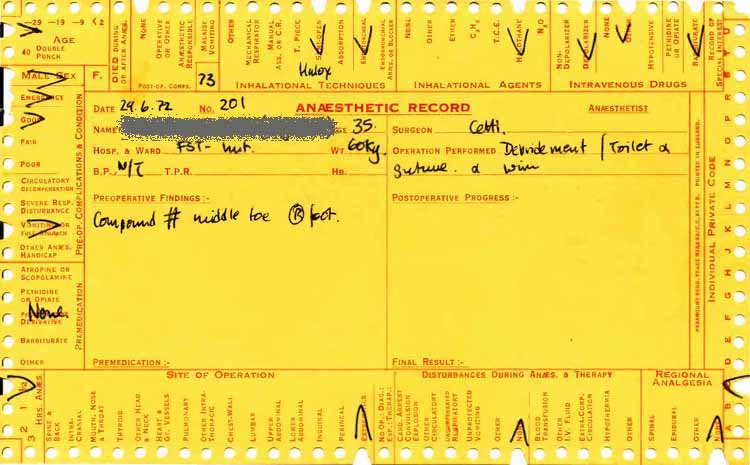 -29 -19 -9 <2
AGE
40 DOUBLE PUNCH
MALE SEX F.
DIED DURING OR AFTER ANÆS.
NONE
OPERATIVE OR OTHER
ANÆSTHETIC RESPONSIBLE
MALAISE VOMITING
OTHER
POST-OP. COMPS.
73
MECHANICAL RESPIRATOR
MANUAL ASS. OR C.R.
T. PIECE
SEMI-OPEN
Halox
ABSORPTION
ENDOTRACHEAL
ENDOBRONCHIAL ANÆS. OR BLOCKER
INHALATIONAL TECHNIQUES
NONE
OTHER
ETHER
C3H6
T.C.E.
HALOTHANE
N2O
INHALATIONAL AGENTS
NON-DEPOLARIZER
DEPOLARIZER
NONE
OTHER
HYPOTENSIVE
PETHIDINE OR OPIATE
BARBITURATE
INTRAVENOUS DRUGS
RECORD OF SPECIAL INTEREST
EMERGENCY
GOOD
FAIR
POOR
CIRCULATORY DECOMPENSATION
SEVERE RESP. DISTURBANCE
VOMITING OR FULL STOMACH
OTHER ANÆS. HANDICAP
PRE-OP. COMPLICATIONS & CONDITION
ATROPINE OR SCOPOLAMINE
PETHIDINE OR OPIATE
None
DERIVATIVE
BARBITURATE
OTHER
PREMEDICATION
DATE 29.6.72 NO. 201 ANÆSTHETIC RECORD ANÆSTHETIST
NAME AGE 35. SURGEON Cetti.
HOSP. & WARD FST- hut. WT. 60kg. OPERATION PERFORMED Debridement / Toilet &
B.P. N/T T.P.R. HB. suture. & wire
PREOPERATIVE FINDINGS :- POSTOPERATIVE PROGRESS :-
Compound # middle toe Ⓡ foot.
PREMEDICATION :- FINAL RESULT :-
PRINTED IN ENGLAND.
INDIVIDUAL PRIVATE CODE
3 2 1 ½
HRS. ANÆS.
SITE OF OPERATION
SPINE & BACK
INTRA-CRANIAL
MOUTH, NOSE & THROAT
THYROID
OTHER HEAD & NECK
HEART & GT. VESSELS
PULMONARY
OTHER INTRA-THORACIC
CHEST-WALL
LUMBAR
UPPER ABDOMINAL
LOWER ABDOMINAL
INGUINAL
PERINEAL
EXTREMITIES
NO OP.: DIAG.: EXP.: THERAP.:
DISTURBANCES DURING ANÆS. & THERAPY
CARD. ARREST CONVULSION EXPLOSION
OTHER CIRCULATORY
UNEXPECTED RESPIRATORY
UNPROVOKED VOMITING
OTHER
NONE
BLOOD TRANSFUSION
OTHER I.V. FLUID
EXTRA-CORP. CIRCULATION
HYPOTHERMIA
OTHER
REGIONAL ANALGESIA
SPINAL
EPIDURAL
OTHER
NONE